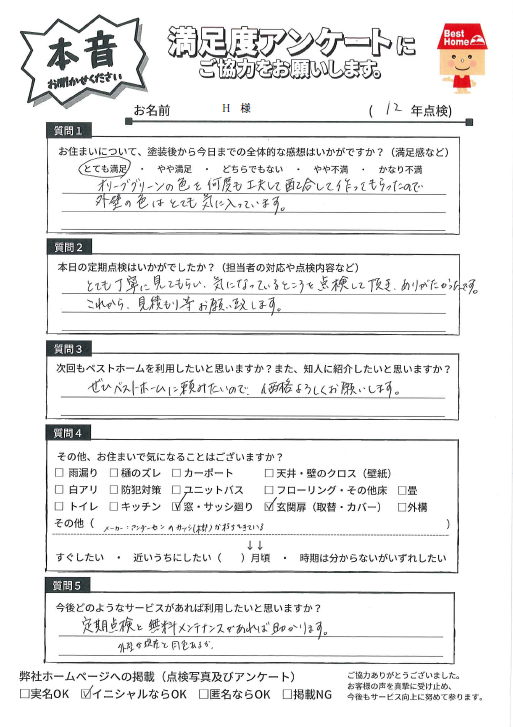 本音
お聞かせください
満足度アンケートに
ご協力をお願いします。
Best
Home
お名前 H 様 ( 12 年点検)
質問1
お住まいについて、塗装後から今日までの全体的な感想はいかがですか?(満足感など)
とても満足 ・ やや満足 ・ どちらでもない ・ やや不満 ・ かなり不満
オリーブグリーンの色を何度も工夫して配合して作ってもらったので
外壁の色はとても気に入っています。
質問2
本日の定期点検はいかがでしたか?(担当者の対応や点検内容など)
とても丁寧に見てもらい、気になっているところを点検して頂き、ありがたかったです。
これから、見積もり等お願い致します。
質問3
次回もベストホームを利用したいと思いますか?また、知人に紹介したいと思いますか?
ぜひベストホームに頼みたいので、価格よろしくお願いします。
質問4
その他、お住まいで気になることはございますか?
□ 雨漏り □ 樋のズレ □ カーポート □ 天井・壁のクロス(壁紙)
□ 白アリ □ 防犯対策 □ ユニットバス □ フローリング・その他床 □畳
□ トイレ □ キッチン ☑ 窓・サッシ廻り ☑ 玄関扉(取替・カバー) □外構
その他( メーカー:アンダーセンのサッシ(木部)が朽ちてきている )
↓↓
すぐしたい ・ 近いうちにしたい( )月頃 ・ 時期は分からないがいずれしたい
質問5
今後どのようなサービスがあれば利用したいと思いますか?
定期点検と無料メンテナンスがあれば助かります。
弊社ホームページへの掲載(点検写真及びアンケート)
□実名OK ☑イニシャルならOK □匿名ならOK □掲載NG
ご協力ありがとうございました。
お客様の声を真摯に受け止め、
今後もサービス向上に努めて参ります。